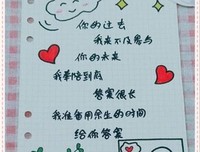 你的过去
我来不及参与
你的未来
我奉陪到底
答案很长
我准备用余生的时间
给你答案